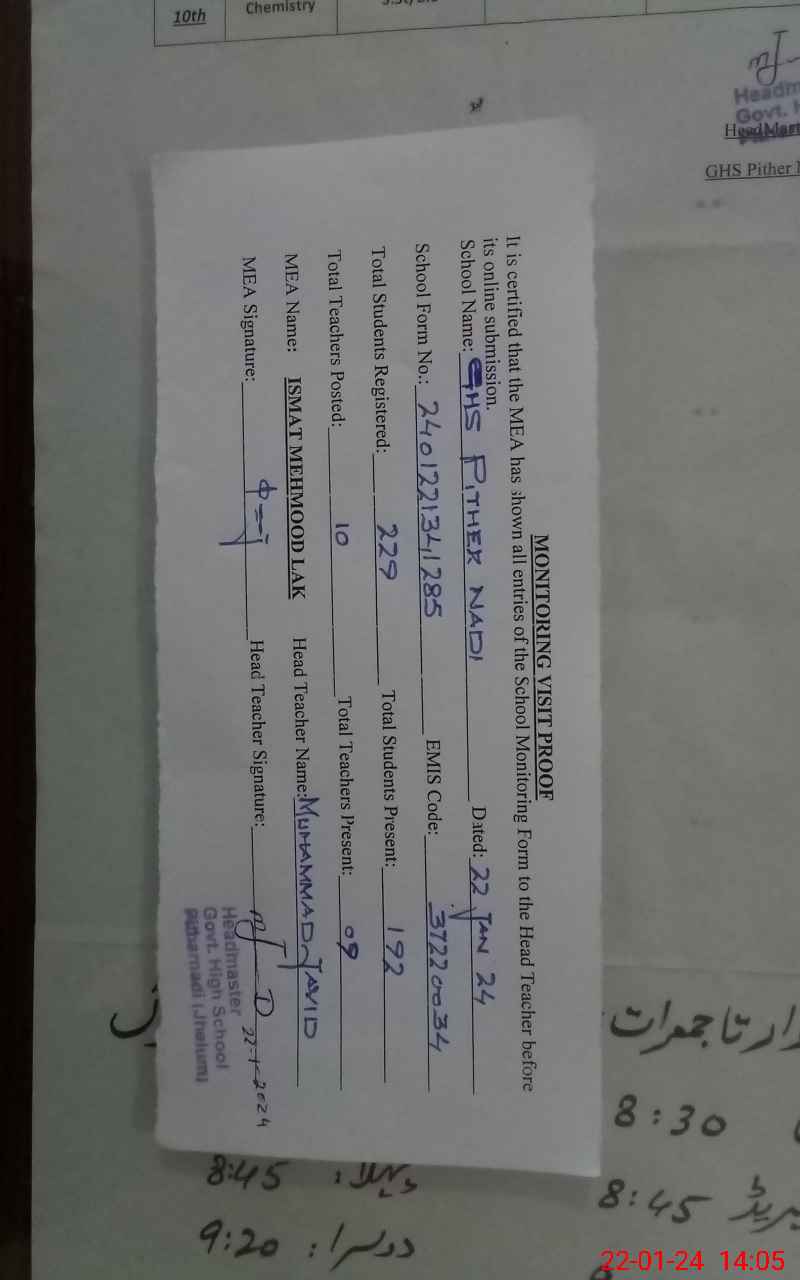 10th
Chemistry
Headm
Govt. H
HeadMast
GHS Pither N
MONITORING VISIT PROOF
It is certified that the MEA has shown all entries of the School Monitoring Form to the Head Teacher before
its online submission.
School Name: GHS PITHER NADI Dated: 22 JAN 24
School Form No.: 2401221341285 EMIS Code: 37220034
Total Students Registered: 229 Total Students Present: 192
Total Teachers Posted: 10 Total Teachers Present: 09
MEA Name: ISMAT MEHMOOD LAK Head Teacher Name: MUHAMMAD JAVID
MEA Signature: Head Teacher Signature: 22-1-2024
Headmaster
Govt. High School
Pithernadi (Jhelum)
تا جمعرات
8:30
8:45
8:45
دوسرا: 9:20
22-01-24 14:05